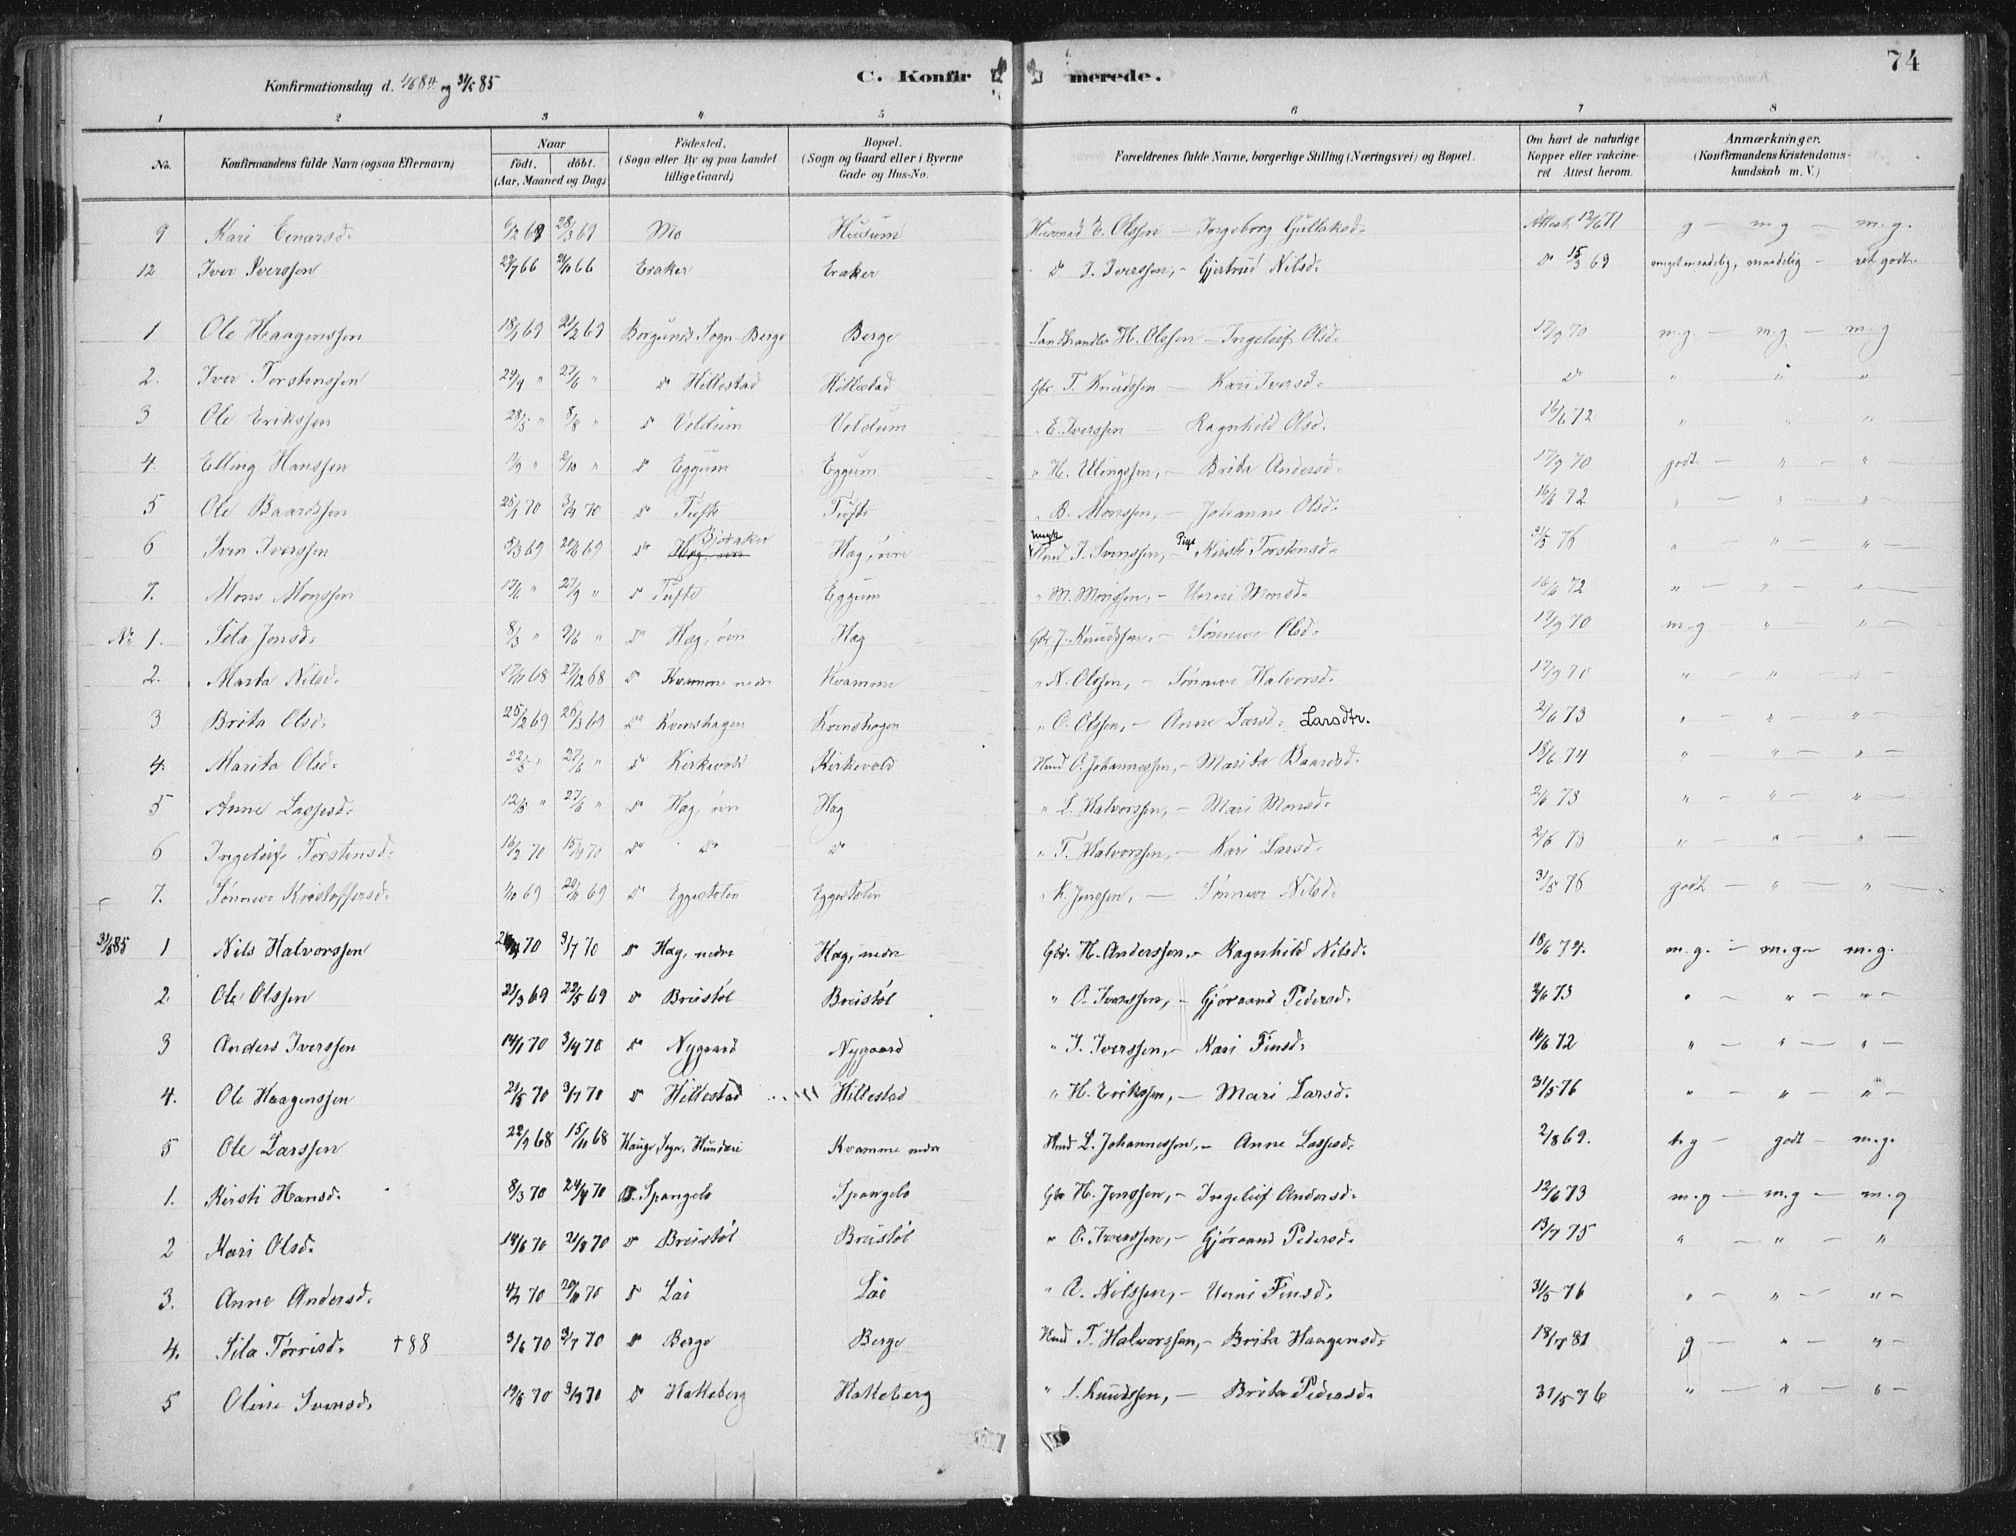 Konfirmationsdag d. 1/6 84. og 31/5 85
C. Konfirmerede.
74
1 2 3 4 5 6 7 8
No. Konfirmandens fulde Navn (ogsaa Efternavn) Naar födt. döbt. (Aar, Maaned og Dag) Födested. (Sogn eller By og paa Landet tillige Gaard) Bopæl. (Sogn og Gaard eller i Byerne Gade og Hus-No. Forældrenes fulde Navne, borgerlige Stilling (Næringsvei) og Bopæl. Om havt de naturlige Kopper eller vakcineret Attest herom. Anmærkninger. (Konfirmandens Kristendomskundskab m. V.)
9 Kari Einarsd. 6/2 69 28/3 69 Mo Husum Husmd E. Olssen — Ingeborg Gullaksd. Attest 12/6 71 g — m g — m.g.
12 Iver Iverssen 29/7 66 66 Eraker Eraker do I. Iverssen, — Gjertrud Nilsd. do 15/3 69 meget maadelig, maadelig — ret godt
1 Ole Haagenssen 18/1 69 21/2 69 Borgunds Sogn - Berge Berge H. Olssen — Ingeleif Olsd. 17/9 70 m.g. — m.g — m.g
2. Iver Torstenssen 24/4 " 27/6 " do Hillestad Hillestad Gbr. T. Knudssen — Kari Iversd. do " " "
3 Ole Erikssen 28/5 " 8/8 " do Voldum Voldum " E. Iverssen — Ragnhild Olsd. 16/6 72 " " "
4. Elling Hanssen " 2/10 " do Eggum Eggum " H. Ellingssen, — Brita Andersd. 17/9 70 godt — " — " —
5 Ole Baardssen 25/1 70 3/4 70 do Tufte Tufte " B. Monssen, — Johanne Olsd. 16/6 72 " — " — " —
6 Sven Iverssen 5/3 69 69 do Hæg, övre Björaker Hæg, övre Ungk I. Svenssen, — Pige Kirsti Torstensd. 31/5 76 " — " — " —
7. Mons Monssen 17/6 " 27/9 " do Tufte Eggum " M. Monssen, — Unni Monsd. 16/6 72 " — " — " —
No 1. Sila Jonsd. 8/3 " 9/6 " do Hæg, övre Hæg Gbr. J. Knudssen, — Sønneve Olsd. 17/9 70 m.g — " — " —
2. Marta Nilsd. 17/11 68 27/12 68 do Kvamme nedre Kvamme " N. Olssen, — Sønneve Halvorsd. 17/9 70 " — " — " —
3 Brita Olsd. 25/2 69 25/3 69 do Kvenshagen Kvenshagen " O. Olssen, — Anne Larsd. Larsdtr. 2/6 73 " — " — " —
4. Marita Olsd. 22/5 " 27/6 " do Kirkevold Kirkevold Hmd O. Johannessen, — Marita Baardsd. 18/6 74 " — " — " —
5 Anne Lassesd. 12/5 " 27/6 " do Hæg, övre Hæg " L. Halvorssen, — Mari Monsd. 2/6 73 " — " — " —
6 Ingeleif Torstensd. 16/2 70 15/4 70 do do do " T. Halvorssen, — Kari Larsd. 2/6 73 " — " — " —
7. Sønneve Kristoffersd. 1/10 69 20/11 69 do Eggestølen Eggestølen " K. Jenssen, — Sønneve Nilsd. 31/5 76 godt — " — " —
31/5 85 1 Nils Halvorssen 70 3/7 70 do Hæg, nedre Hæg, nedre Gbr. H. Anderssen, — Ragnhild Nilsd. 18/6 74. m.g. — m.g — m.g.
2. Ole Olssen 21/3 69 22/5 69 do Breistöl Breistöl " O. Iverssen, — Gjøraand Pedersd. 2/6 73 " — " — " —
3 Anders Iverssen 14/1 70 3/4 70 do Nygaard Nygaard " I. Iverssen, — Kari Finsd. 16/6 72 " — " — " —
4. Ole Haagenssen 21/5 70 3/7 70 do Hillestad Hillestad " H. Erikssen, — Mari Larsd. 31/5 76 " — " — " —
5 Ole Larssen 22/9 68 15/11 68 Hauge Sogn, Hundere Kvamme nedre Hmd L. Johannessen, — Anne Lassesd. 2/8 69. t.g — godt — m.g.
1. Kirsti Hansd. 8/3 70 24/4 70 B. Spangelo Spangelo Gbr H. Jenssen, — Ingeleif Andersd. 12/6 73 m.g — m.g — m.g
2 Kari Olsd. 14/6 70 21/8 70 do Breistöl Breistöl " O. Iverssen, — Gjøraand Pedersd. 13/7 75 " — " — "
3. Anne Andersd. 70 20/11 70 do Lai Lai " A. Nilssen, — Unni Finsd. 31/5 76 " — " — " —
4. Sila Tørrisd. † 88 3/6 70 3/7 70 do Berge Berge Hmd T. Halvorssen, — Brita Haagensd. 81 g — " — " —
5 Oline Svensd. 19/8 70 3/9 70 do Hatleberg Hatleberg " S. Knudssen, — Brita Pedersd. 31/5 76 " — " — " —